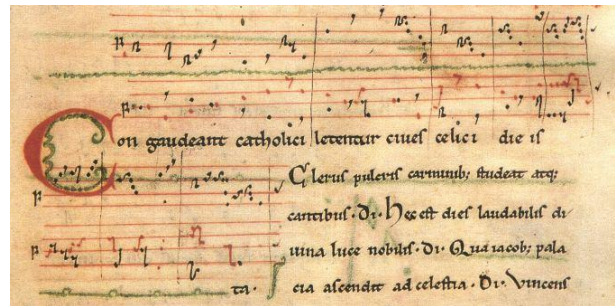 Congaudeant catholici letentur ciues celici die is
ta.
Clerus pulcris carminib; studeat atq;
cantibus. Di. Hec est dies laudabilis di
uina luce nobilis. Di. Qua iacob; pala
cia ascendit ad celestia. Di. Vincens